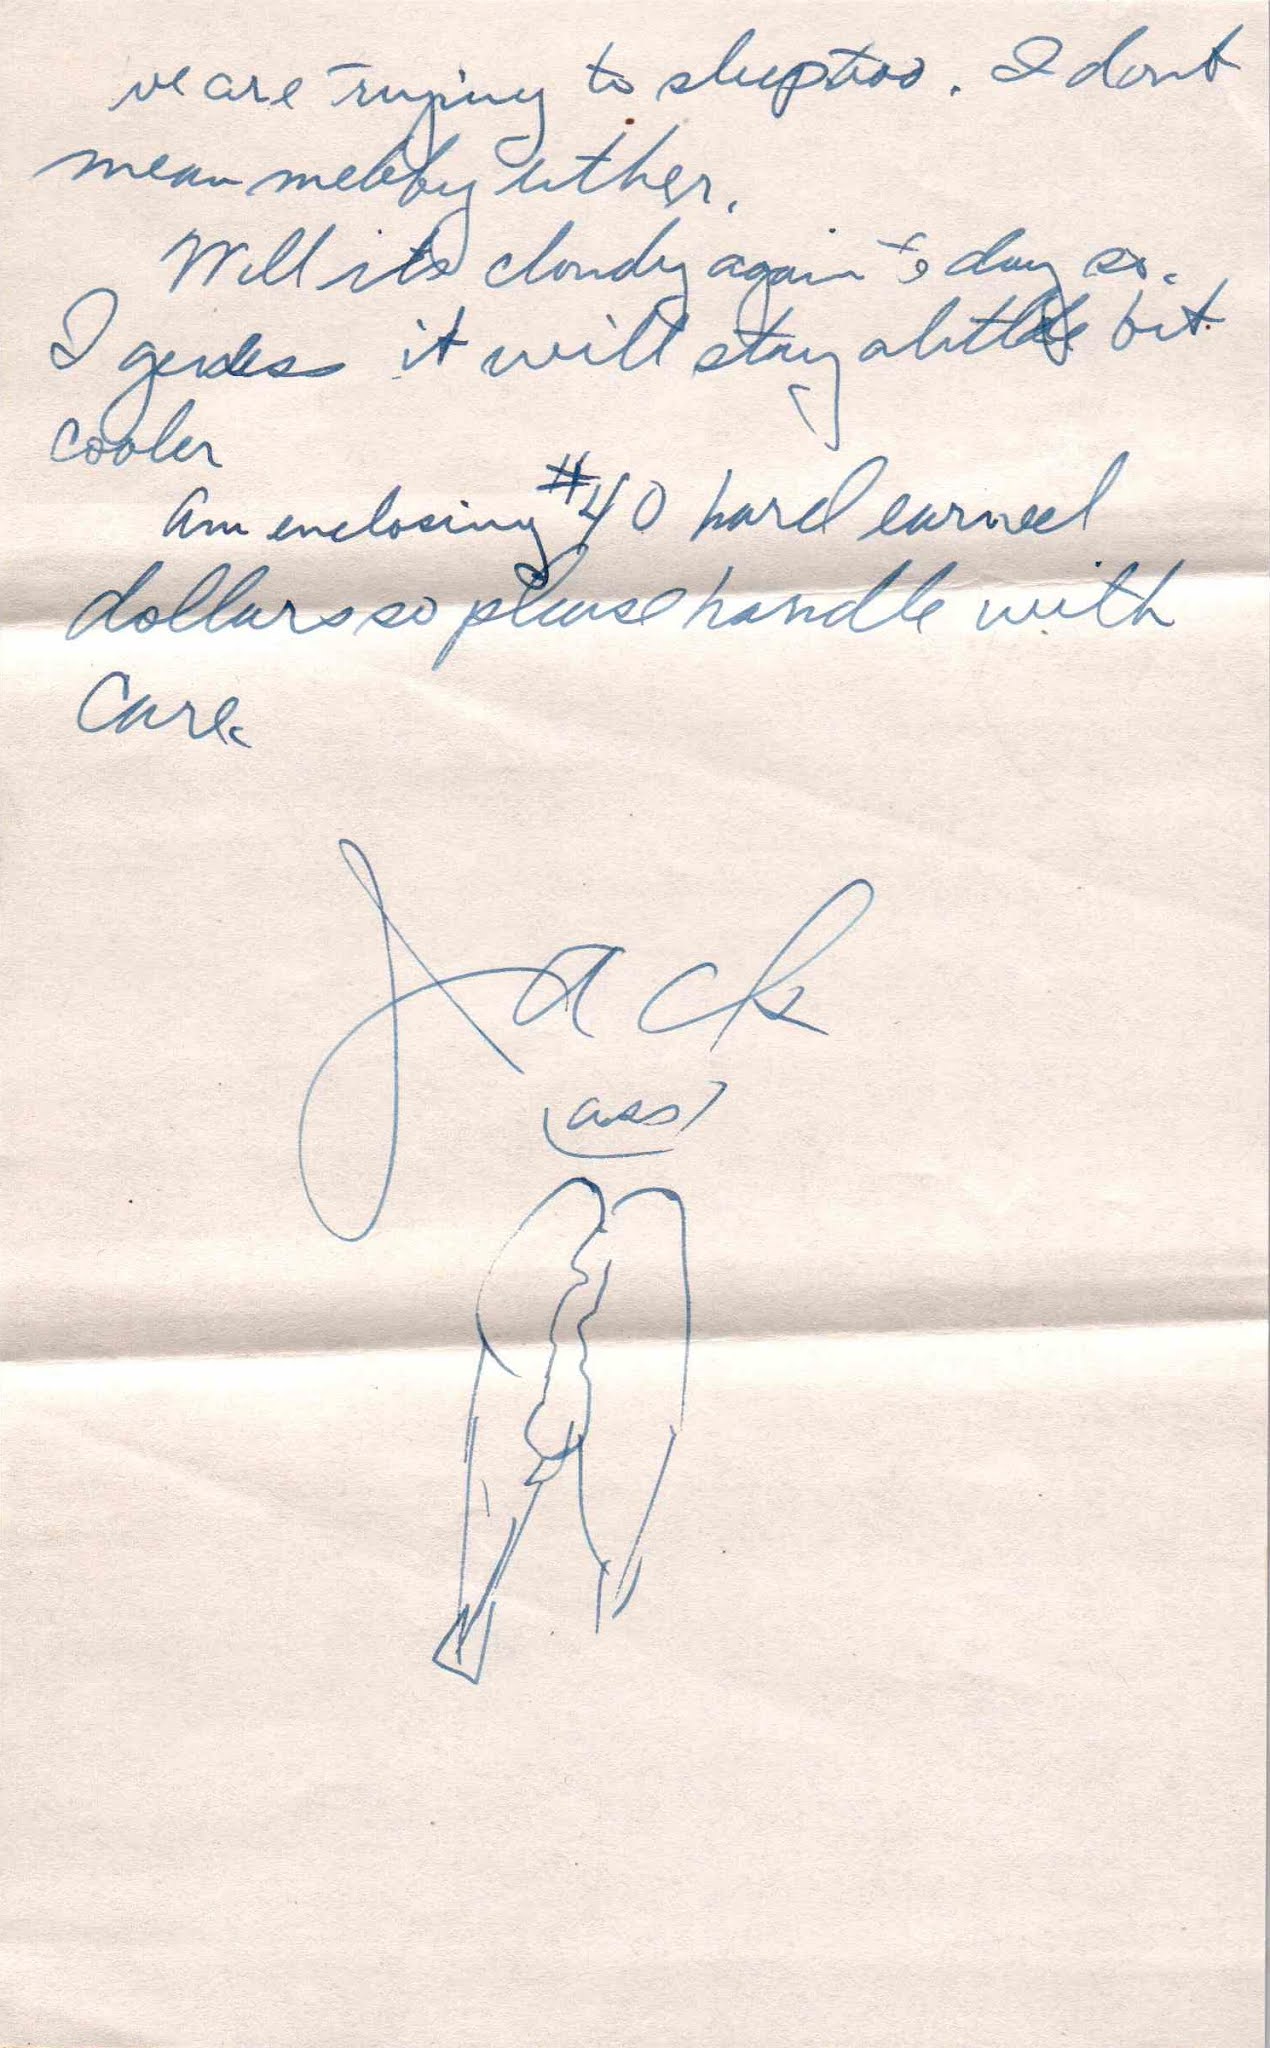 we are trying to sleep too. I dont
mean mebby either.
Well its cloudy again to day so.
I guess it will stay a little bit
cooler
am enclosing #40 hard earned
dollars so please handle with
Care.
Jack
(ass)